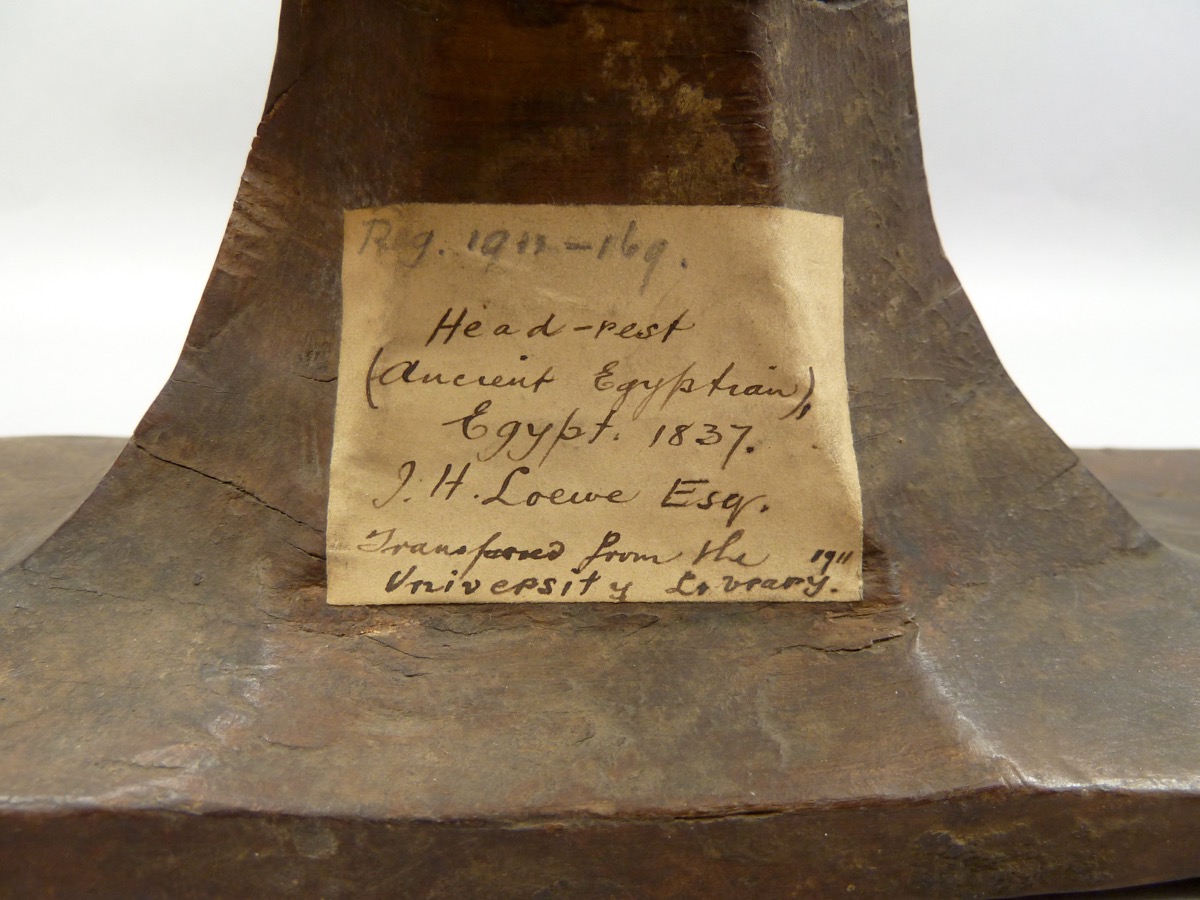 Reg. 1911-169.
Head-rest
(Ancient Egyptian),
Egypt. 1837.
J. H. Loewe Esq.
Transferred from the 1911
University Library.